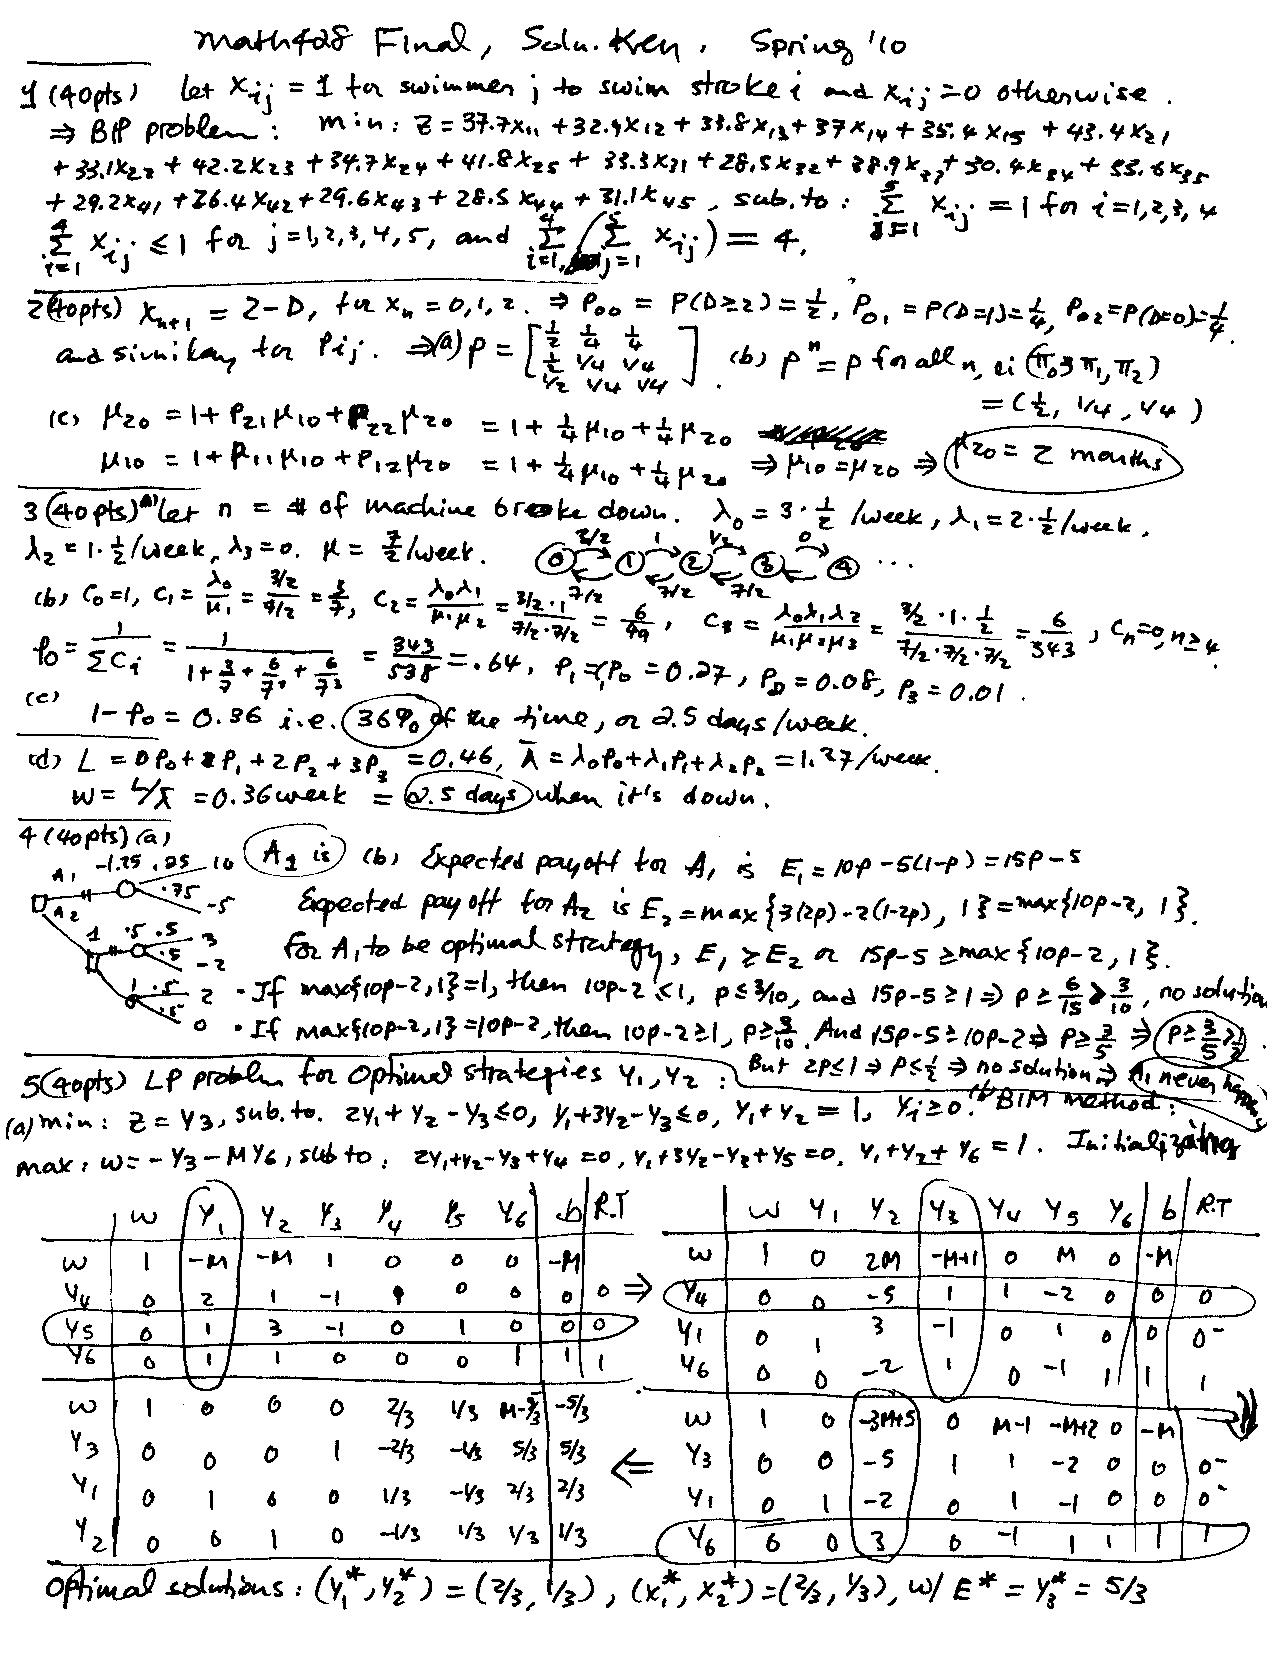 Math428 Final, Soln. Key. Spring '10
1 (40pts) Let x_ij = 1 for swimmer j to swim stroke i and x_ij = 0 otherwise.
⇒ BIP problem: min: Z = 37.7x11 + 32.9x12 + 33.8x13 + 37x14 + 35.4x15 + 43.4x21
+ 33.1x22 + 42.2x23 + 34.7x24 + 41.8x25 + 33.3x31 + 28.5x32 + 38.9x33 + 30.4x34 + 33.6x35
+ 29.2x41 + 26.4x42 + 29.6x43 + 28.5x44 + 31.1x45, sub.to: Σ_{j=1}^{5} x_ij = 1 for i=1,2,3,4
Σ_{i=1}^{4} x_ij ≤ 1 for j=1,2,3,4,5, and Σ_{i=1}^{4} (Σ_{j=1}^{5} x_ij) = 4.
2(40pts) X_{n+1} = 2-D, for X_n = 0,1,2. ⇒ P00 = P(D≥2) = 1/2, P01 = P(D=1) = 1/4, P02 = P(D=0) = 1/4
and similarly for Pij. ⇒ (a) P = [1/2 1/4 1/4; 1/2 1/4 1/4; 1/2 1/4 1/4]. (b) P^n = P for all n, (π0, π1, π2)
= (1/2, 1/4, 1/4)
(c) μ20 = 1 + P21 μ10 + P22 μ20 = 1 + 1/4 μ10 + 1/4 μ20
μ10 = 1 + P11 μ10 + P12 μ20 = 1 + 1/4 μ10 + 1/4 μ20 ⇒ μ10 = μ20 ⇒ μ20 = 2 months
3 (40pts) (a) let n = # of machine broke down. λ0 = 3·1/2 /week, λ1 = 2·1/2 /week.
λ2 = 1·1/2 /week, λ3 = 0. μ = 7/2 /week. 0 1 2 3 4 ... 3/2 1 1/2 0 7/2 7/2 7/2
(b) C0 = 1, C1 = λ0/μ1 = (3/2)/(7/2) = 3/7, C2 = λ0λ1/μ1μ2 = (3/2·1)/(7/2·7/2) = 6/49, C3 = λ0λ1λ2/μ1μ2μ3 = (3/2·1·1/2)/(7/2·7/2·7/2) = 6/343, Cn = 0, n≥4
P0 = 1/ΣCi = 1/(1+3/7+6/7²+6/7³) = 343/538 = .64, P1 = C1P0 = 0.27, P2 = 0.08, P3 = 0.01.
(c) 1-P0 = 0.36 i.e. 36% of the time, or 2.5 days/week.
(d) L = 0P0 + 1P1 + 2P2 + 3P3 = 0.46, λ̄ = λ0P0 + λ1P1 + λ2P2 = 1.27/week.
W = L/λ̄ = 0.36 week = 2.5 days when it's down.
4 (40pts) (a) A2 is (b) Expected payoff for A1 is E1 = 10p - 5(1-p) = 15p - 5
A1 -1.25 .25 10
.75 -5
A2
Expected payoff for A2 is E2 = max{3(2p) - 2(1-2p), 1} = max{10p-2, 1}.
1 .5 .5 3
.5 -2
For A1 to be optimal strategy, E1 ≥ E2 or 15p-5 ≥ max{10p-2, 1}.
1 .5 2
.5 0
• If max{10p-2, 1} = 1, then 10p-2 ≤ 1, p ≤ 3/10, and 15p-5 ≥ 1 ⇒ p ≥ 6/15 > 3/10, no solution
• If max{10p-2, 1} = 10p-2, then 10p-2 ≥ 1, p ≥ 3/10. And 15p-5 ≥ 10p-2 ⇒ p ≥ 3/5 ⇒ p ≥ 3/5 > 1/2.
But 2p ≤ 1 ⇒ p ≤ 1/2 ⇒ no solution ⇒ A1 never happens
5(40pts) LP problem for optimal strategies Y1, Y2:
(a) min: Z = Y3, sub.to. 2Y1 + Y2 - Y3 ≤ 0, Y1 + 3Y2 - Y3 ≤ 0, Y1 + Y2 = 1, Yi ≥ 0. (b) BIM method:
max: w = -Y3 - MY6, sub to: 2Y1+Y2-Y3+Y4 = 0, Y1+3Y2-Y3+Y5 = 0, Y1+Y2+Y6 = 1. Initializing
w Y1 Y2 Y3 Y4 Y5 Y6 b R.T
w 1 -M -M 1 0 0 0 -M
Y4 0 2 1 -1 1 0 0 0 0 ⇒
Y5 0 1 3 -1 0 1 0 0 0
Y6 0 1 1 0 0 0 1 1 1
w Y1 Y2 Y3 Y4 Y5 Y6 b R.T
w 1 0 2M -M+1 0 M 0 -M
Y4 0 0 -5 1 1 -2 0 0 0
Y1 0 1 3 -1 0 1 0 0 0-
Y6 0 0 -2 1 0 -1 1 1 1
w 1 0 -3M+5 0 M-1 -M+2 0 -M
Y3 0 0 -5 1 1 -2 0 0 0-
Y1 0 1 -2 0 1 -1 0 0 0-
Y6 0 0 3 0 -1 1 1 1 1
⇐
w 1 0 0 0 2/3 1/3 M-5/3 -5/3
Y3 0 0 0 1 -2/3 -1/3 5/3 5/3
Y1 0 1 0 0 1/3 -1/3 2/3 2/3
Y2 0 0 1 0 -1/3 1/3 1/3 1/3
Optimal solutions: (Y1*, Y2*) = (2/3, 1/3), (X1*, X2*) = (2/3, 1/3), w/ E* = Y3* = 5/3